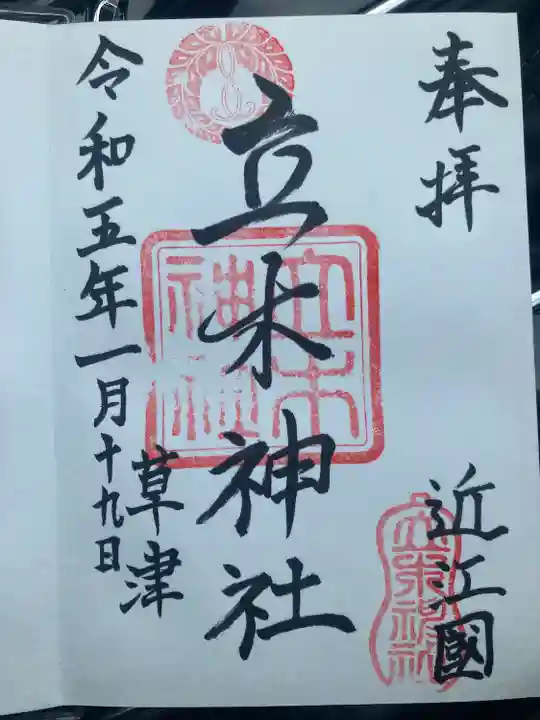 奉拝
近江國
立木神社
立木神社
草津
令和五年一月十九日